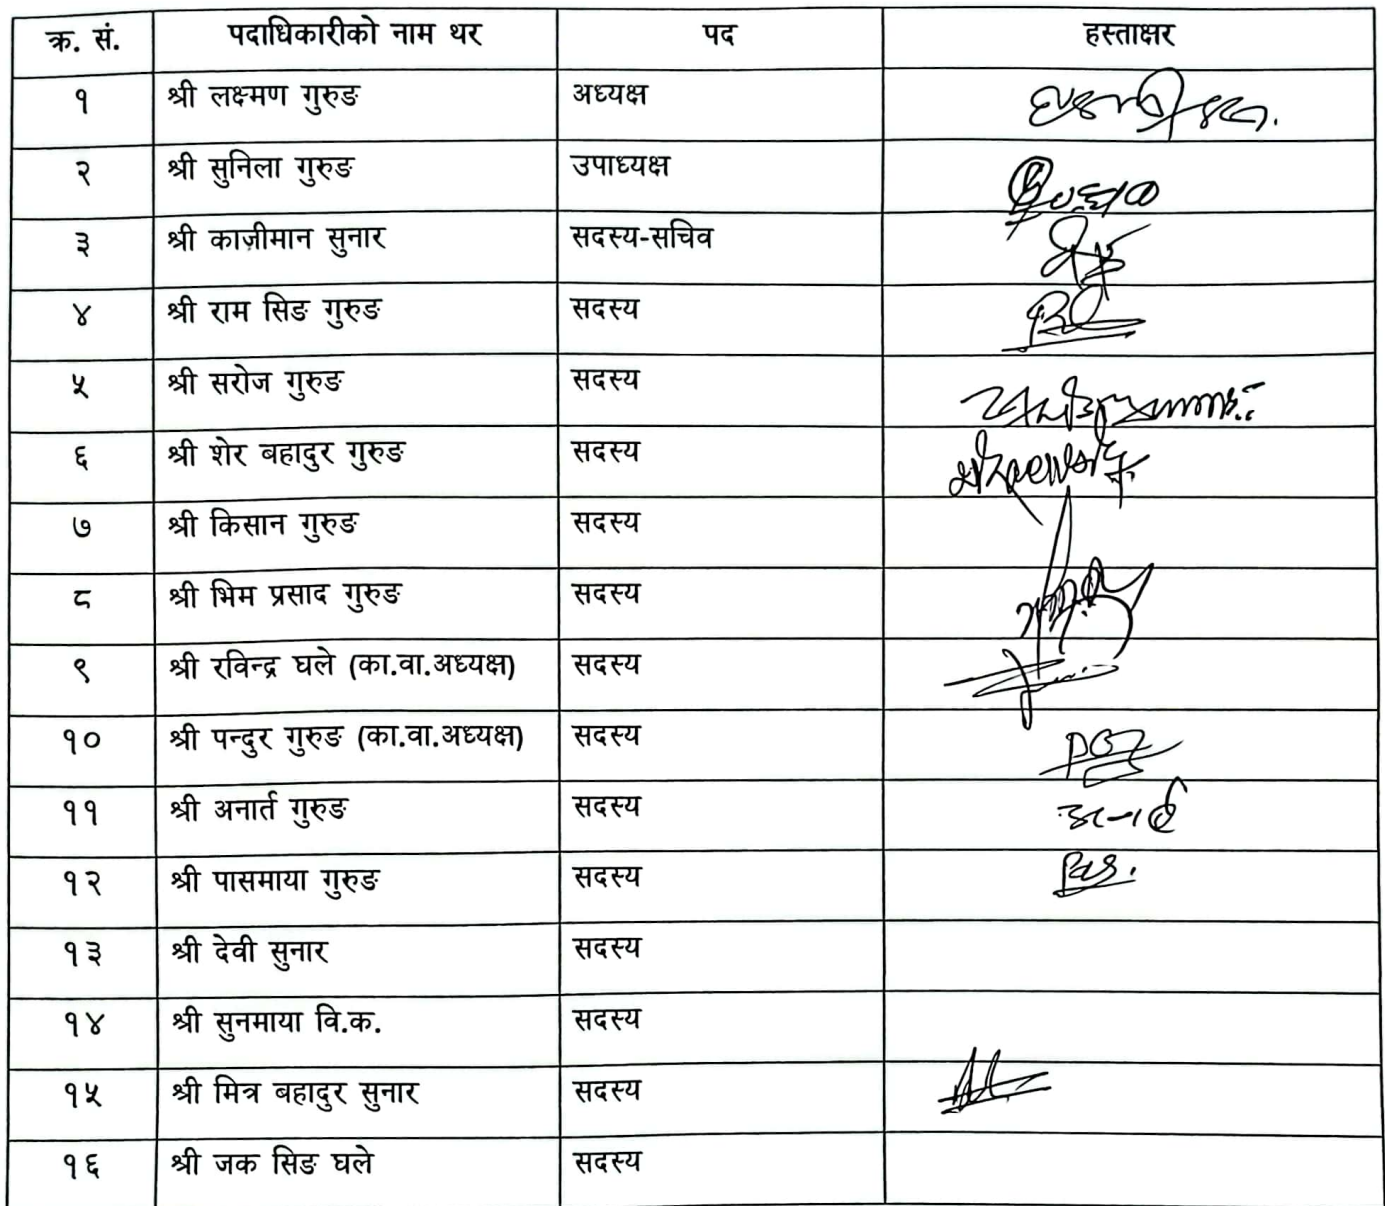 क्र. सं. पदाधिकारीको नाम थर पद हस्ताक्षर
१ श्री लक्ष्मण गुरुङ अध्यक्ष
२ श्री सुनिला गुरुङ उपाध्यक्ष
३ श्री काजीमान सुनार सदस्य-सचिव
४ श्री राम सिङ गुरुङ सदस्य
५ श्री सरोज गुरुङ सदस्य
६ श्री शेर बहादुर गुरुङ सदस्य
७ श्री किसान गुरुङ सदस्य
८ श्री भिम प्रसाद गुरुङ सदस्य
९ श्री रविन्द्र घले (का.वा.अध्यक्ष) सदस्य
१० श्री पन्दुर गुरुङ (का.वा.अध्यक्ष) सदस्य
११ श्री अनार्त गुरुङ सदस्य
१२ श्री पासमाया गुरुङ सदस्य
१३ श्री देवी सुनार सदस्य
१४ श्री सुनमाया वि.क. सदस्य
१५ श्री मित्र बहादुर सुनार सदस्य
१६ श्री जक सिङ घले सदस्य